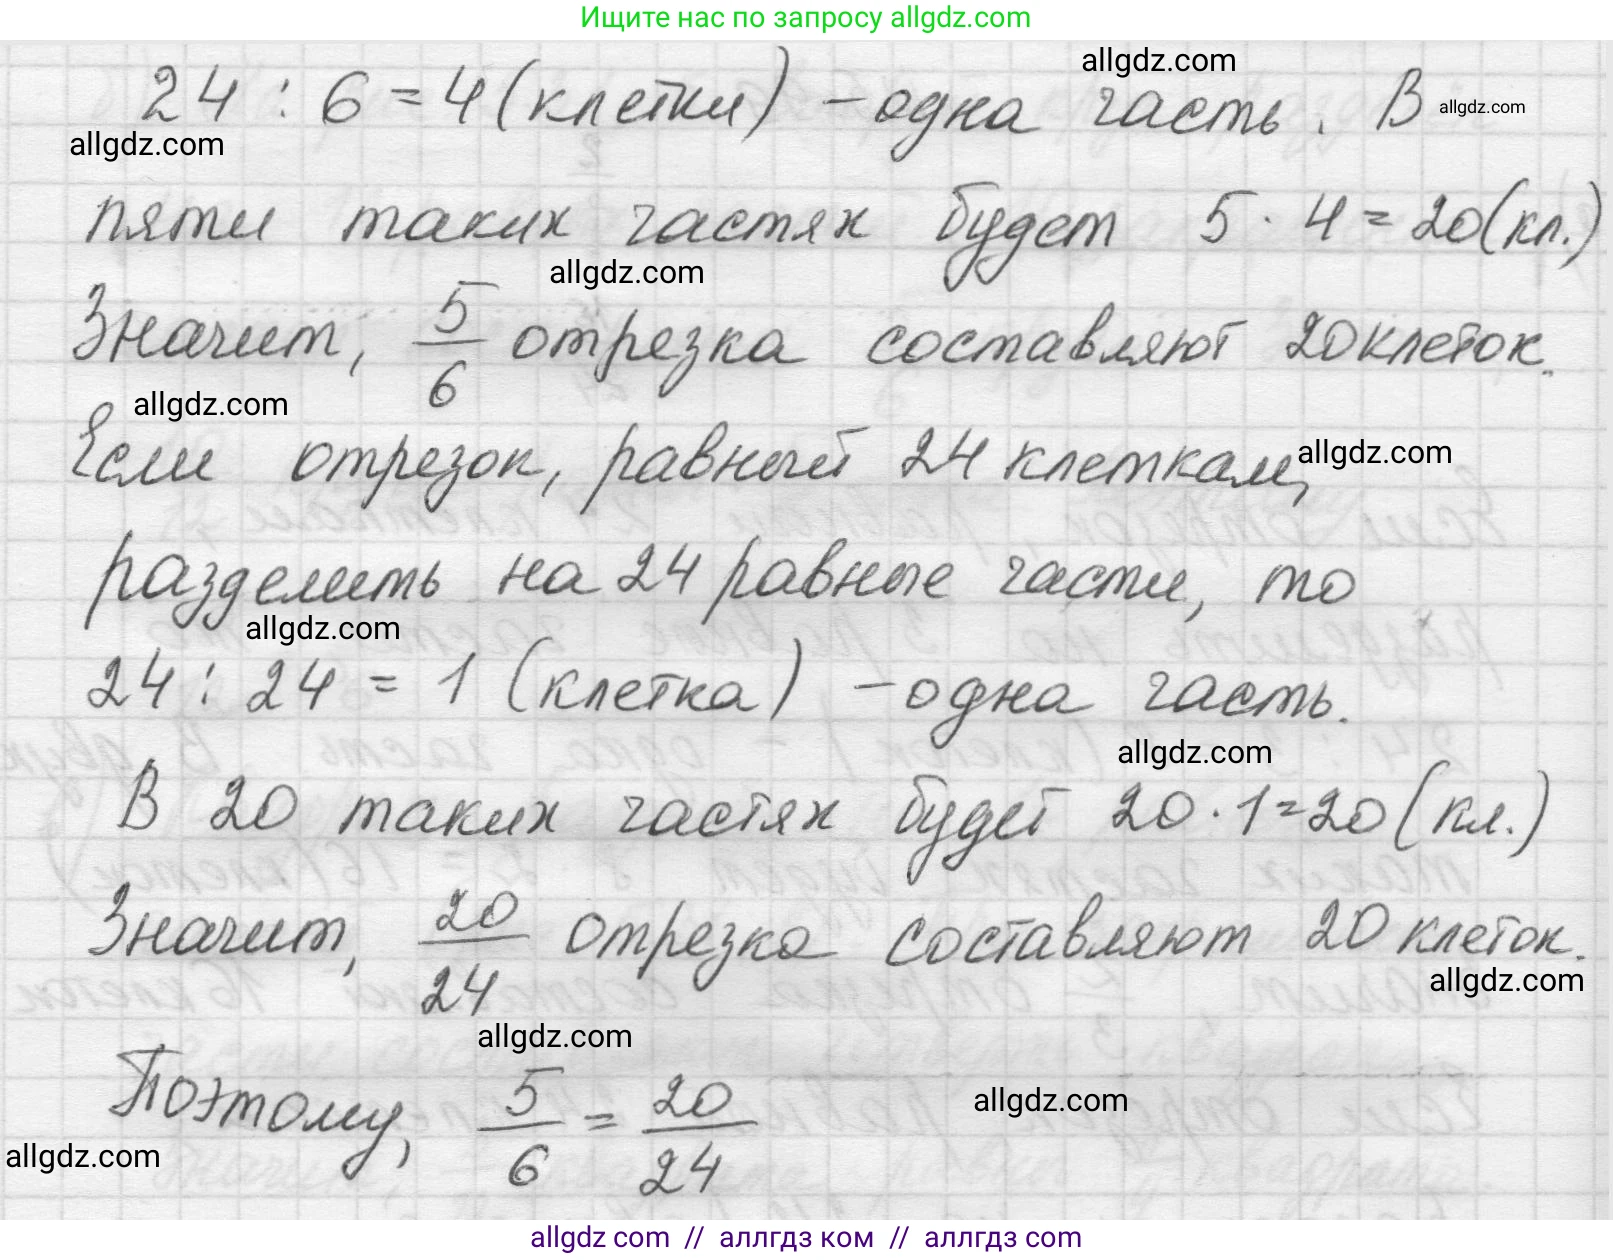 Ищите нас по запросу allgdz.com
allgdz.com
24 : 6 = 4 (клетки) – одна часть. В
allgdz.com
allgdz.com
пяти таких частях будет 5 · 4 = 20 (кл.)
allgdz.com
Значит, 5/6 отрезка составляют 20 клеток.
allgdz.com
Если отрезок, равный 24 клеткам,
allgdz.com
разделить на 24 равные части, то
allgdz.com
24 : 24 = 1 (клетка) – одна часть.
allgdz.com
В 20 таких частях будет 20 · 1 = 20 (кл.)
Значит, 20/24 отрезка составляют 20 клеток.
allgdz.com
allgdz.com
Поэтому, 5/6 = 20/24
allgdz.com
allgdz.com
allgdz com // аллгдз ком // аллгдз com